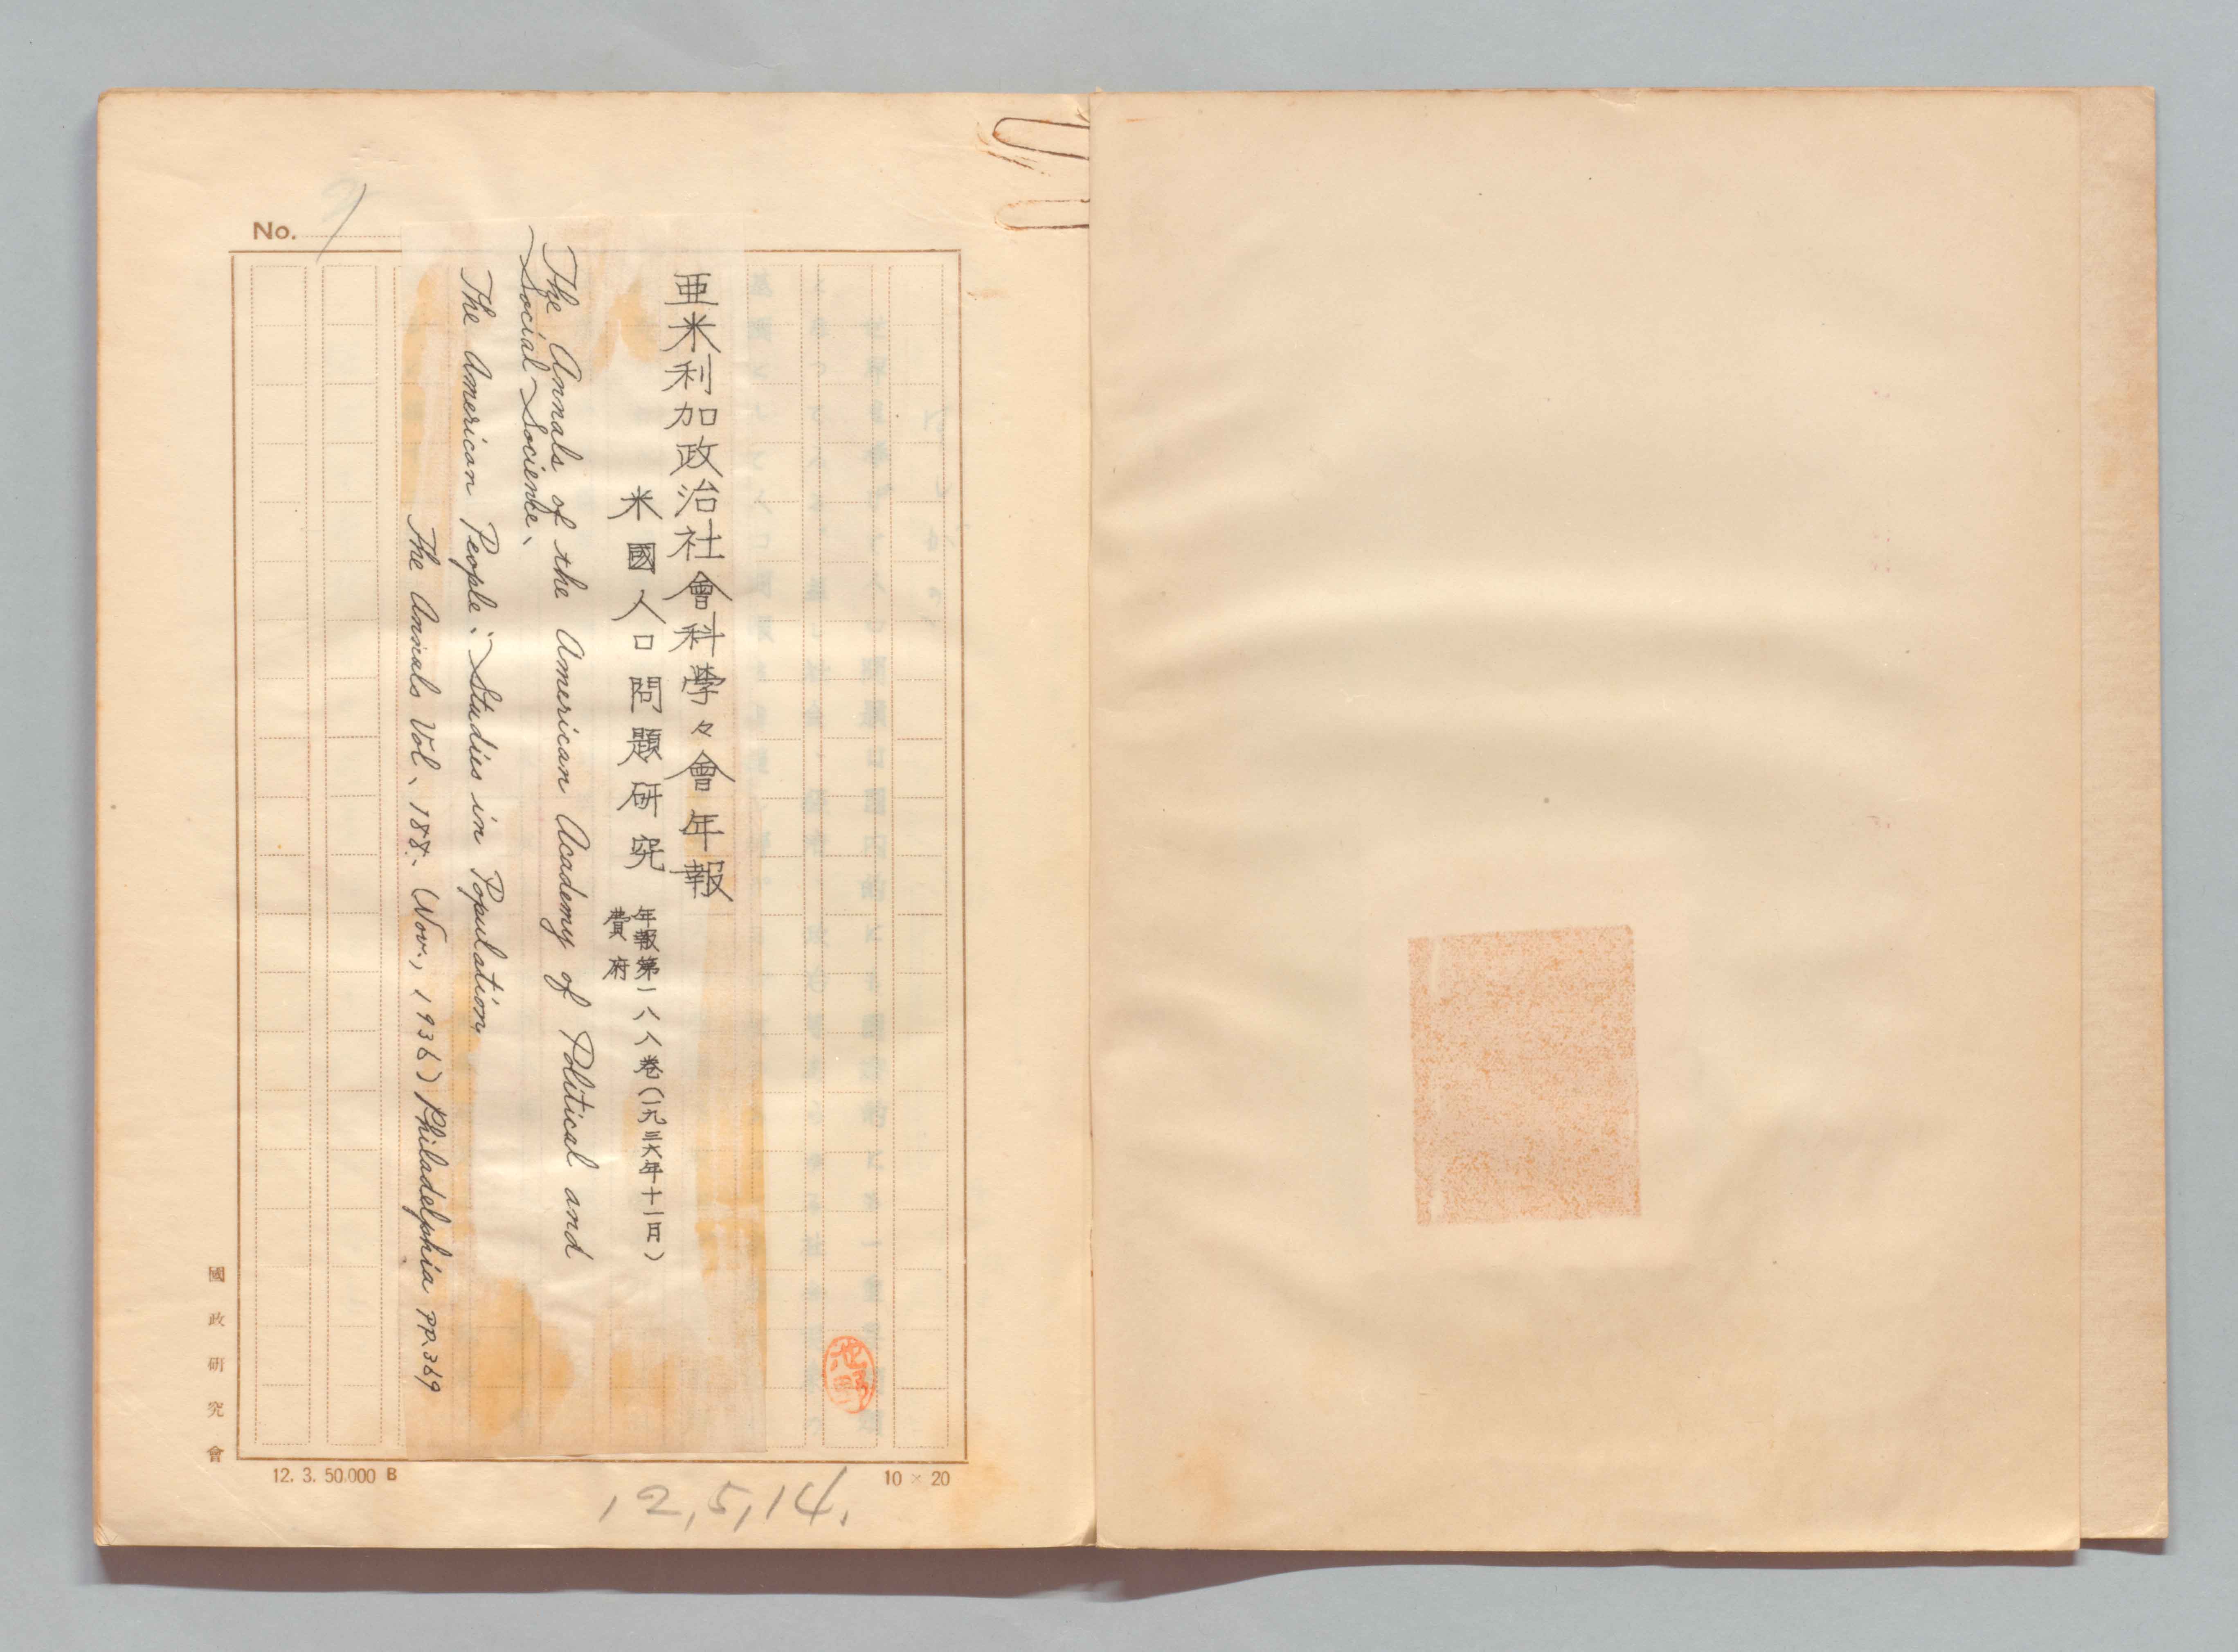 No. 1
亜米利加政治社會科學々會年報
米國人口問題研究
年報第一八八巻(一九三六年十一月)
費府
The Annals of the American Academy of Political and
Social Scienke、
The American People: Studies in Population
The Annals Vol、188、(Nov., 1936) Philadelphia PP.369
國政研究會
12. 3. 50.000 B
10 × 20
12,5,14.